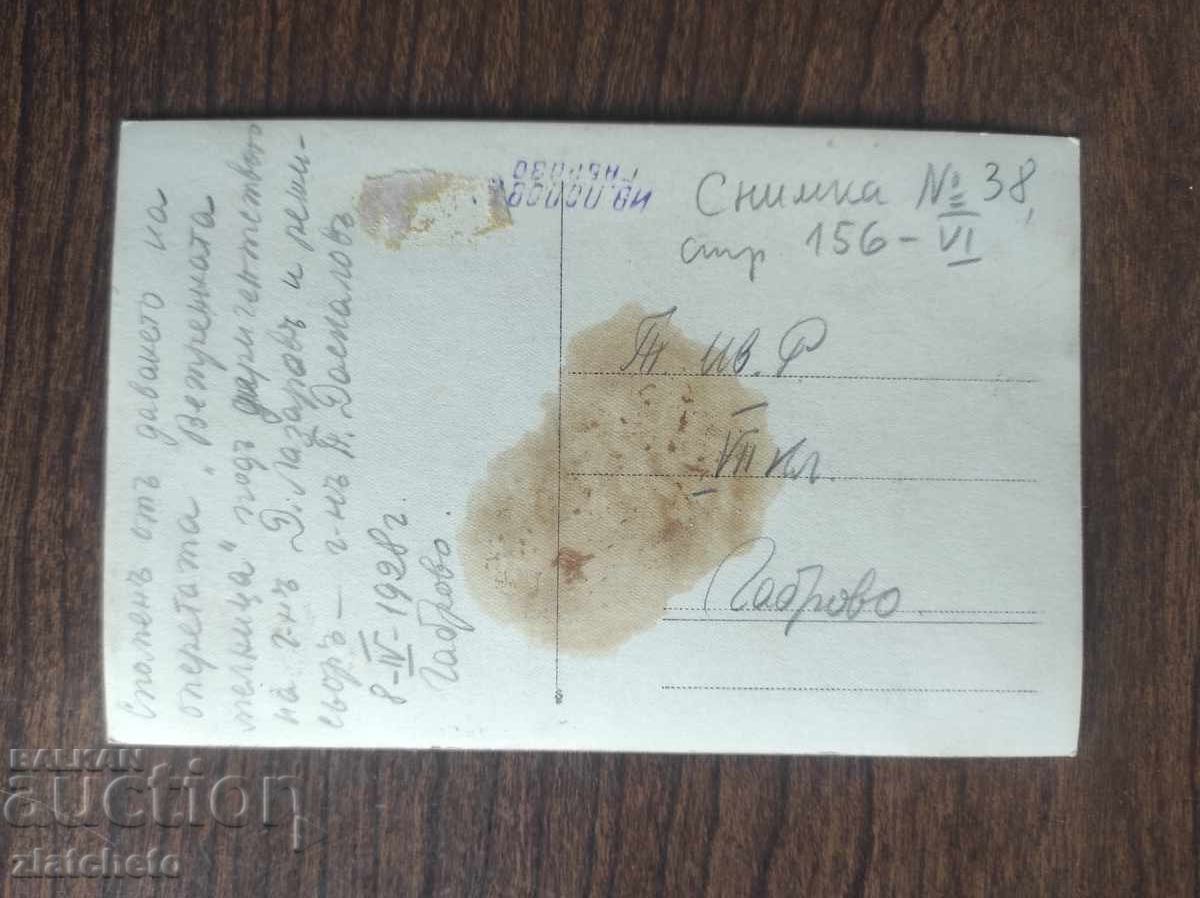 Споменъ отъ даването на
оперетата „Ветрената
мелница" подъ диригентството
на г-нъ Д. Лазаровъ и режи-
сьоръ – г-нъ Н. Доскаловъ
8-IV-1928 г.
Габрово.
ИВ. ПОПОВ
ГАБРОВО
Снимка № 38,
стр. 156 – VI
Ив. Р
VII кл.
Габрово.
BALKAN
auction
zlatcheto